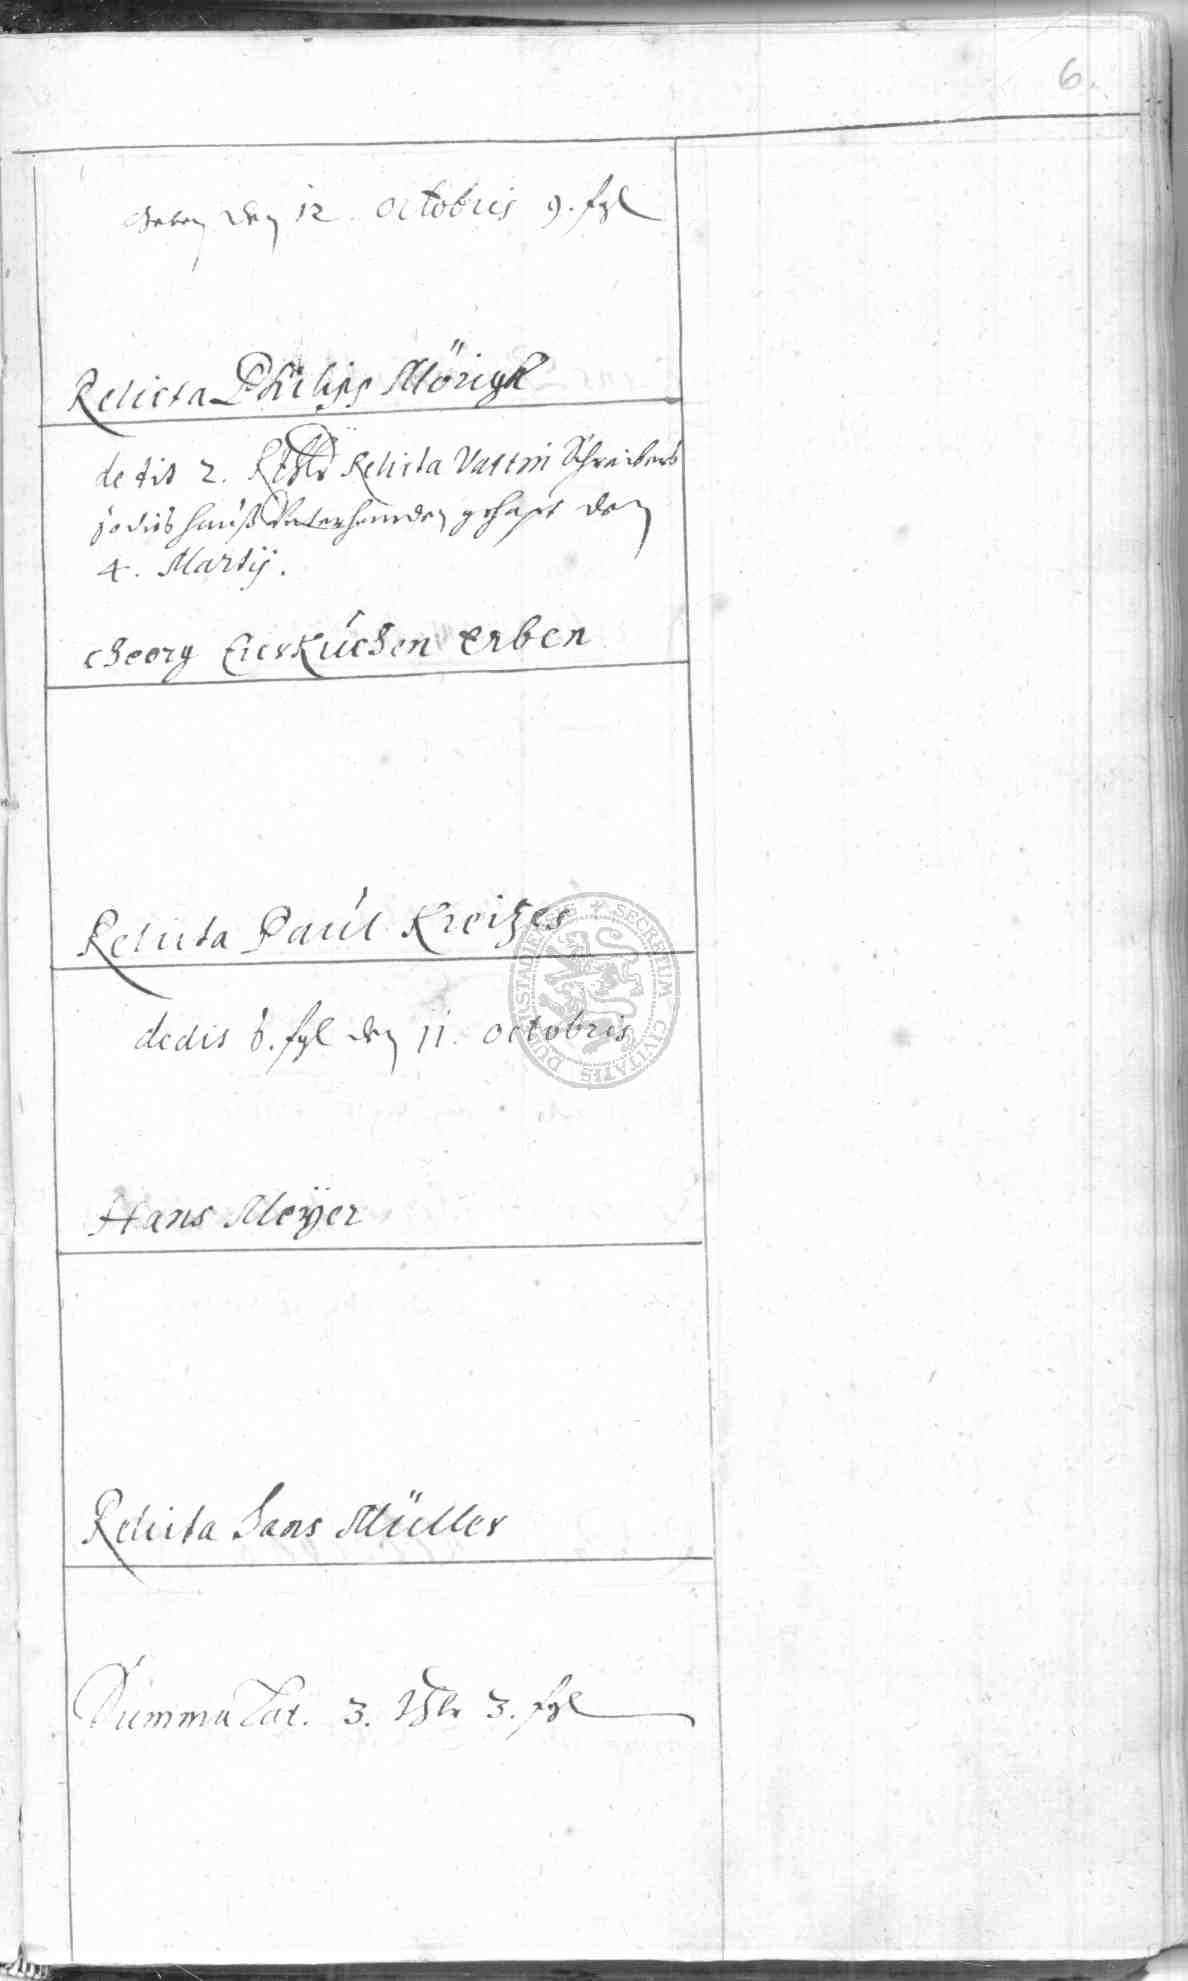 6.
Geben den 12. octobris 9. fgl
Relicta Philips Mörigk
dedit 2. Rthlr Relicta Vattin Schreibers
hauß Unterhanden gehapt den
4. Martij.
Georg Eierkuchen Erben
Relicta Paul Kreitzes
dedit 6. fgl den 11. octobris
Hans Meÿer
Relicta Hans Müller
Summa Lat. 3. Thlr 3. fgl
SECRETUM CIVITATIS DUDERSTADIENSIS